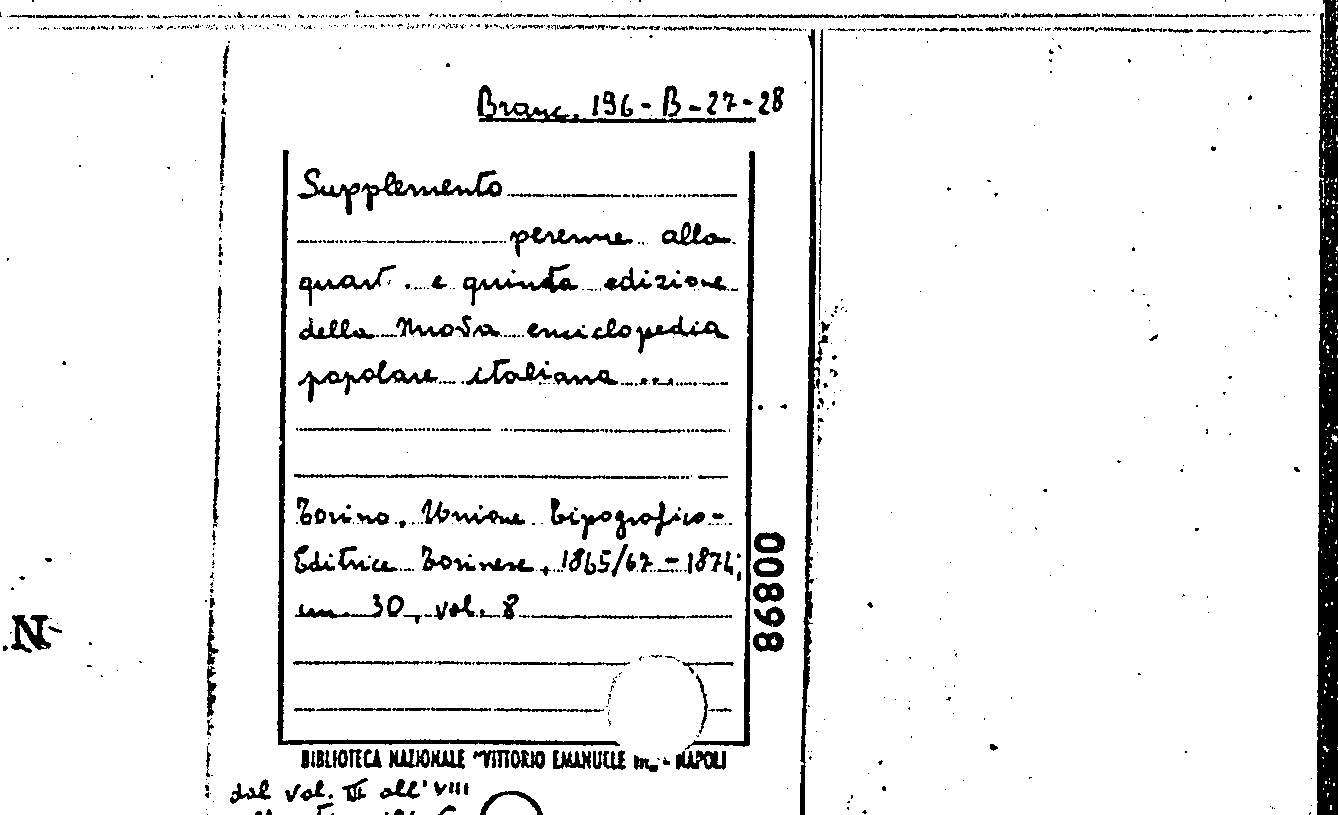 Branc. 196-B-27-28
Supplemento
perenne alla
quart. e quinta edizione
della Nuova enciclopedia
popolare italiana ...
Torino, Unione Tipografico-
Editrice Torinese, 1865/67-1874;
cm. 30, vol. 8
00898
BIBLIOTECA NAZIONALE "VITTORIO EMANUELE III" - NAPOLI
dal vol. III all'VIII
N